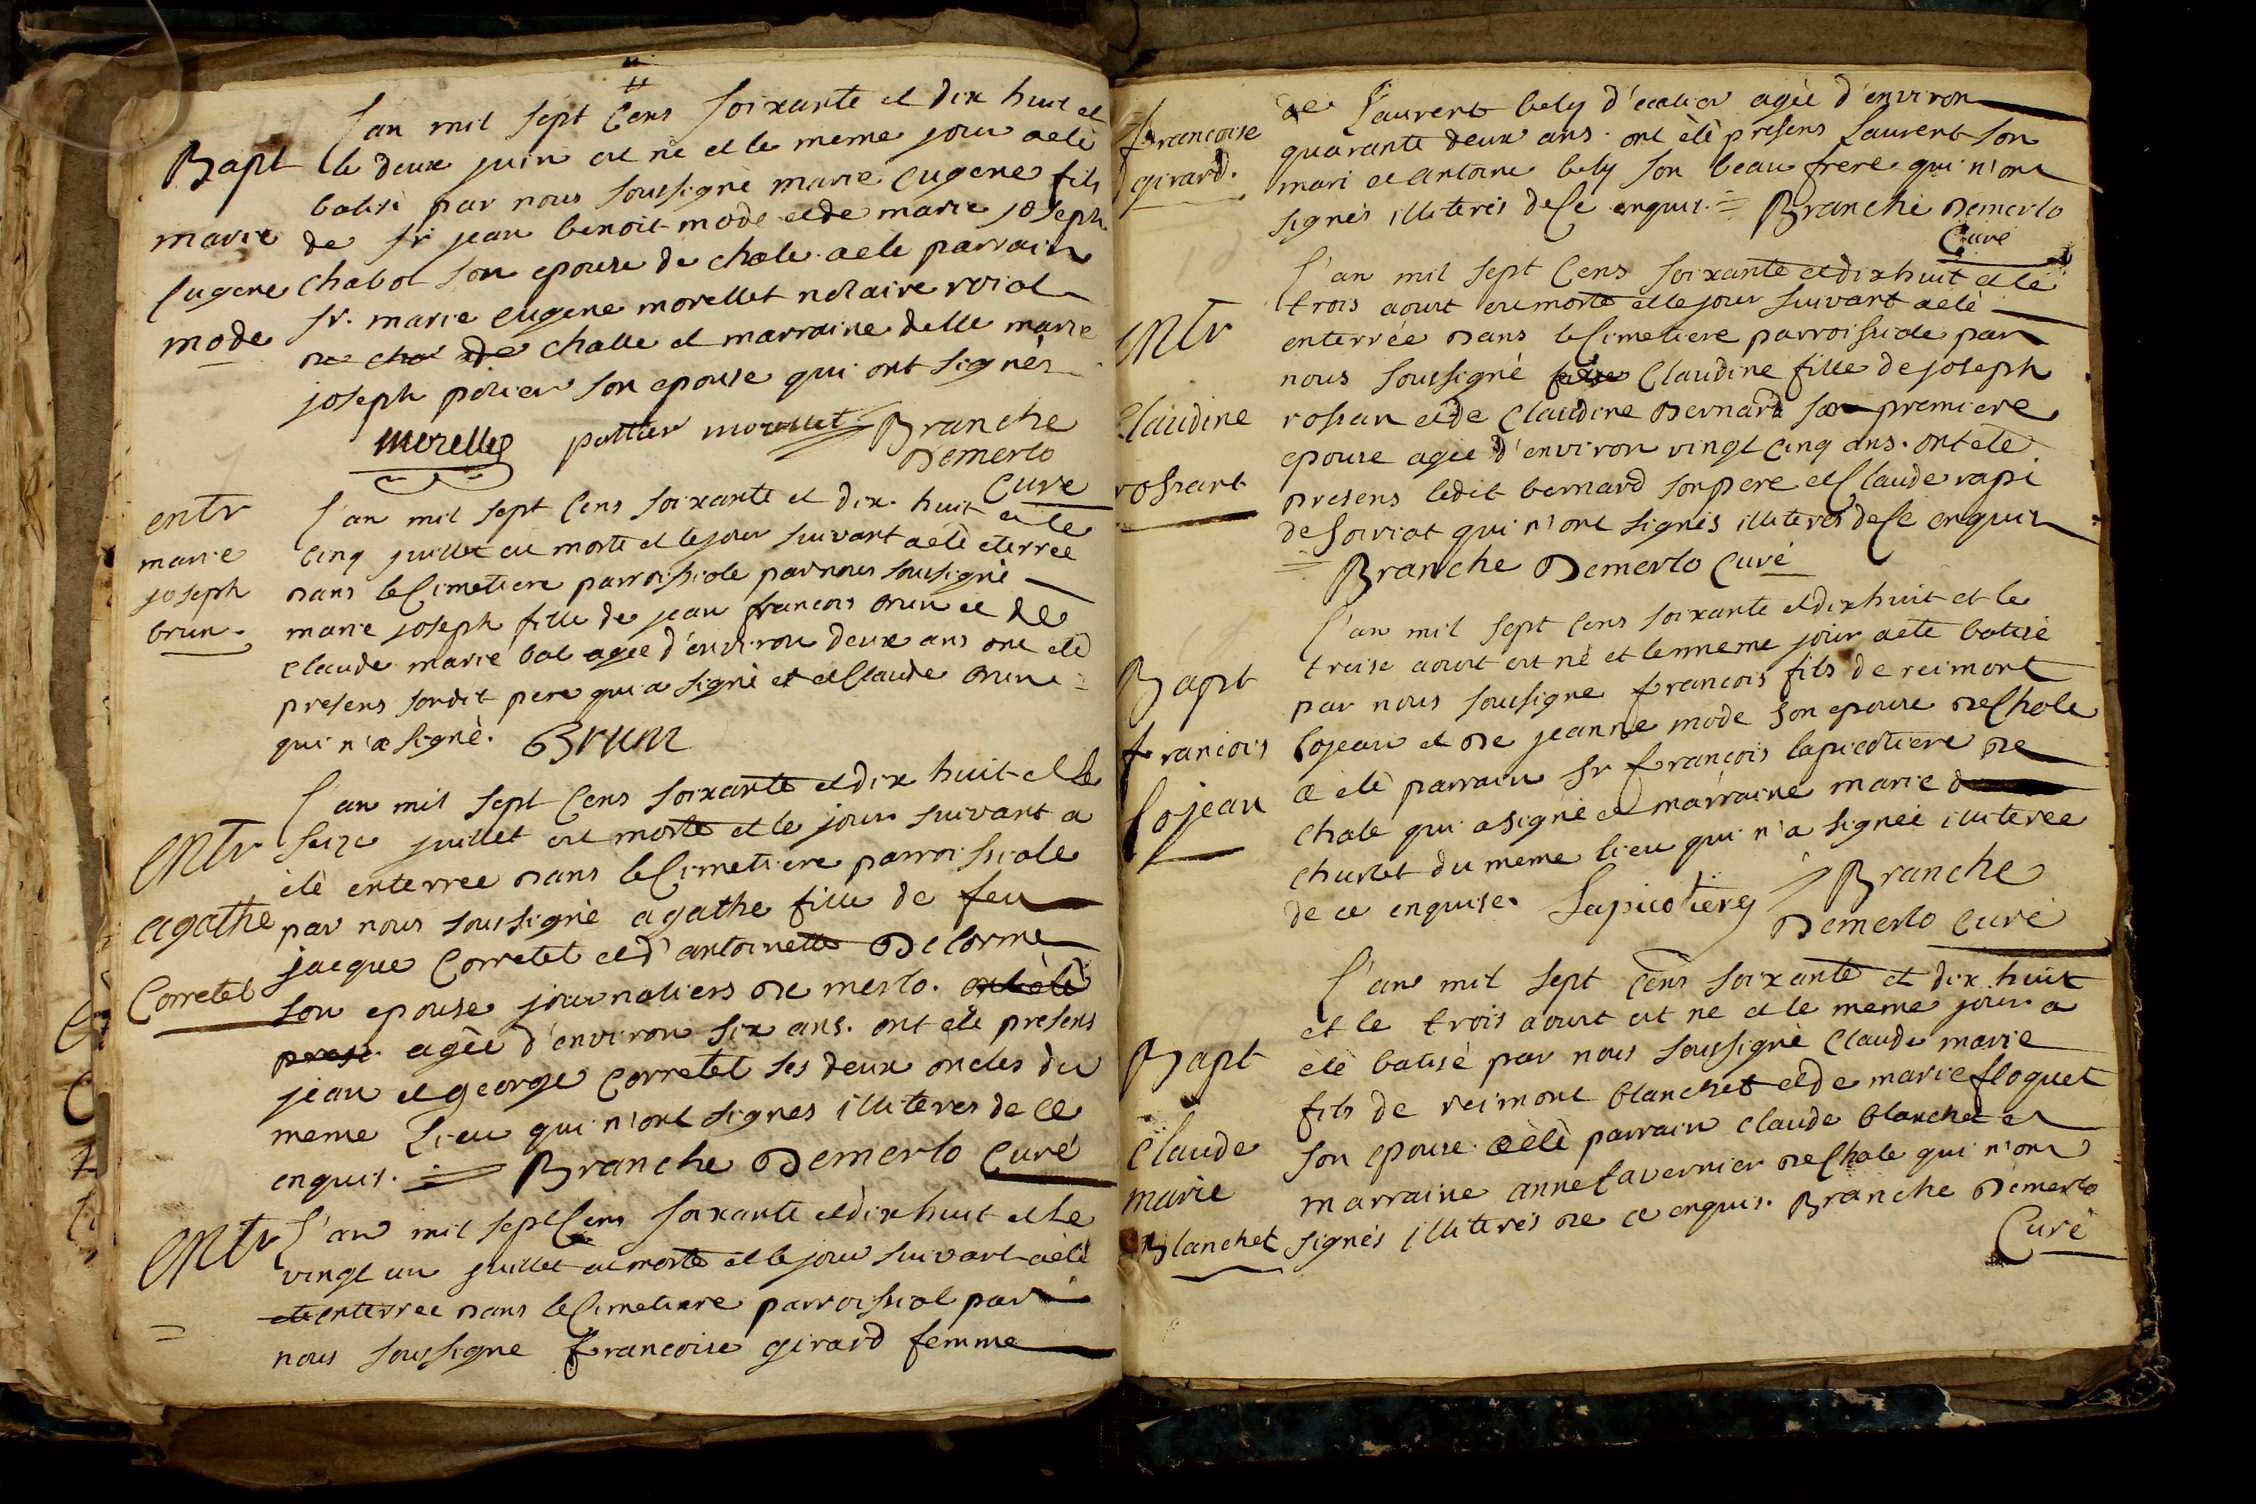 l'an mil sept cens soixante et dix huit et
Bapt le deux juin est né et le meme jour a eté
batisé par nous soussigné marie eugene fils
marie de sr jean benoit mode et de marie joseph
eugene chabot son epouse de chale a ete parrain
mode sr. marie eugene morellet notaire roial
de chal de challe et marraine delle marie
joseph potier son epouse qui ont signés
morellet pottier morellet Branche
Demerlo
curé
entr l'an mil sept cens soixante et dix huit et le
marie cinq juillet est morte et le jour suivant a eté eterree
joseph dans le cimetiere parroissiale par nous sousigné
brun. marie joseph fille de jean francois brun et de
claude marie bal agée d'environ deux ans ont eté
presens sondit pere qui a signé et et claude brun
qui n'a signé. Brun
l'an mil sept cens soixante et dix huit et le
entr seize juillet est morte et le jour suivant a
eté enterree dans le cimetiere parroissiale
agathe par nous soussigné agathe fille de feu
jacque corretet et d'antoinette Delorme
Corretet son epouse journaliers de merlo. ont eté
prese agée d'environ six ans. ont eté presens
jean et george corretet ses deux oncles du
meme lieu qui n'ont signes illiteres de ce
enquis. = Branche Demerlo Curé
entr l'an mil sept cens soixante et dix huit et le
vingt un juillet est morte et le jour suivant a eté
ete enterree dans le cimetiere parroissial par
nous soussigne francoise girard femme
de Laurent bely d' agée d'environ
francoise quarante deux ans. ont été presens Laurent son
girard. mari et antoine bely son beau frere qui n'ont
signés illiterés de ce enquis = Branche Demerlo
Curé
l'an mil sept cens soixante et dix huit et le
trois aoust est morte et le jour suivant a eté
entr enterrée dans le cimetiere parroissiale par
nous soussigné Claudine fille de joseph
Claudine et de Claudine Bernard sa premiere
epouse agée d'environ vingt cinq ans. ont ete
presens ledit bernard son pere et Claude rapi
de qui n'ont signés illiterés de ce enquis
= Branche Demerlo Curé
l'an mil sept cens soixante et dix huit et le
treise aoust est né et le meme jour a eté batisé
Bapt par nous soussigne francois fils de reimont
francois lojean et de jeanne mode son epouse de chale
a eté parrain sr francois lapicotiere de
lojean chale qui a signé et marraine marie
du meme lieu qui n'a signée illiteree
de ce enquise. Lapicotierey Branche
Demerlo curé
l'an mil sept cens soixante et dix huit
et le trois aoust est ne et le meme jour a
Bapt eté batisé par nous soussigné Claude marie
fils de reimont blanchet et de marie floquet
Claude son epouse a eté parrain claude blanchet et
marie marraine anne tavernier de chale qui n'ont
Blanchet signés illiterés de ce enquis. Branche Demerlo
Curé